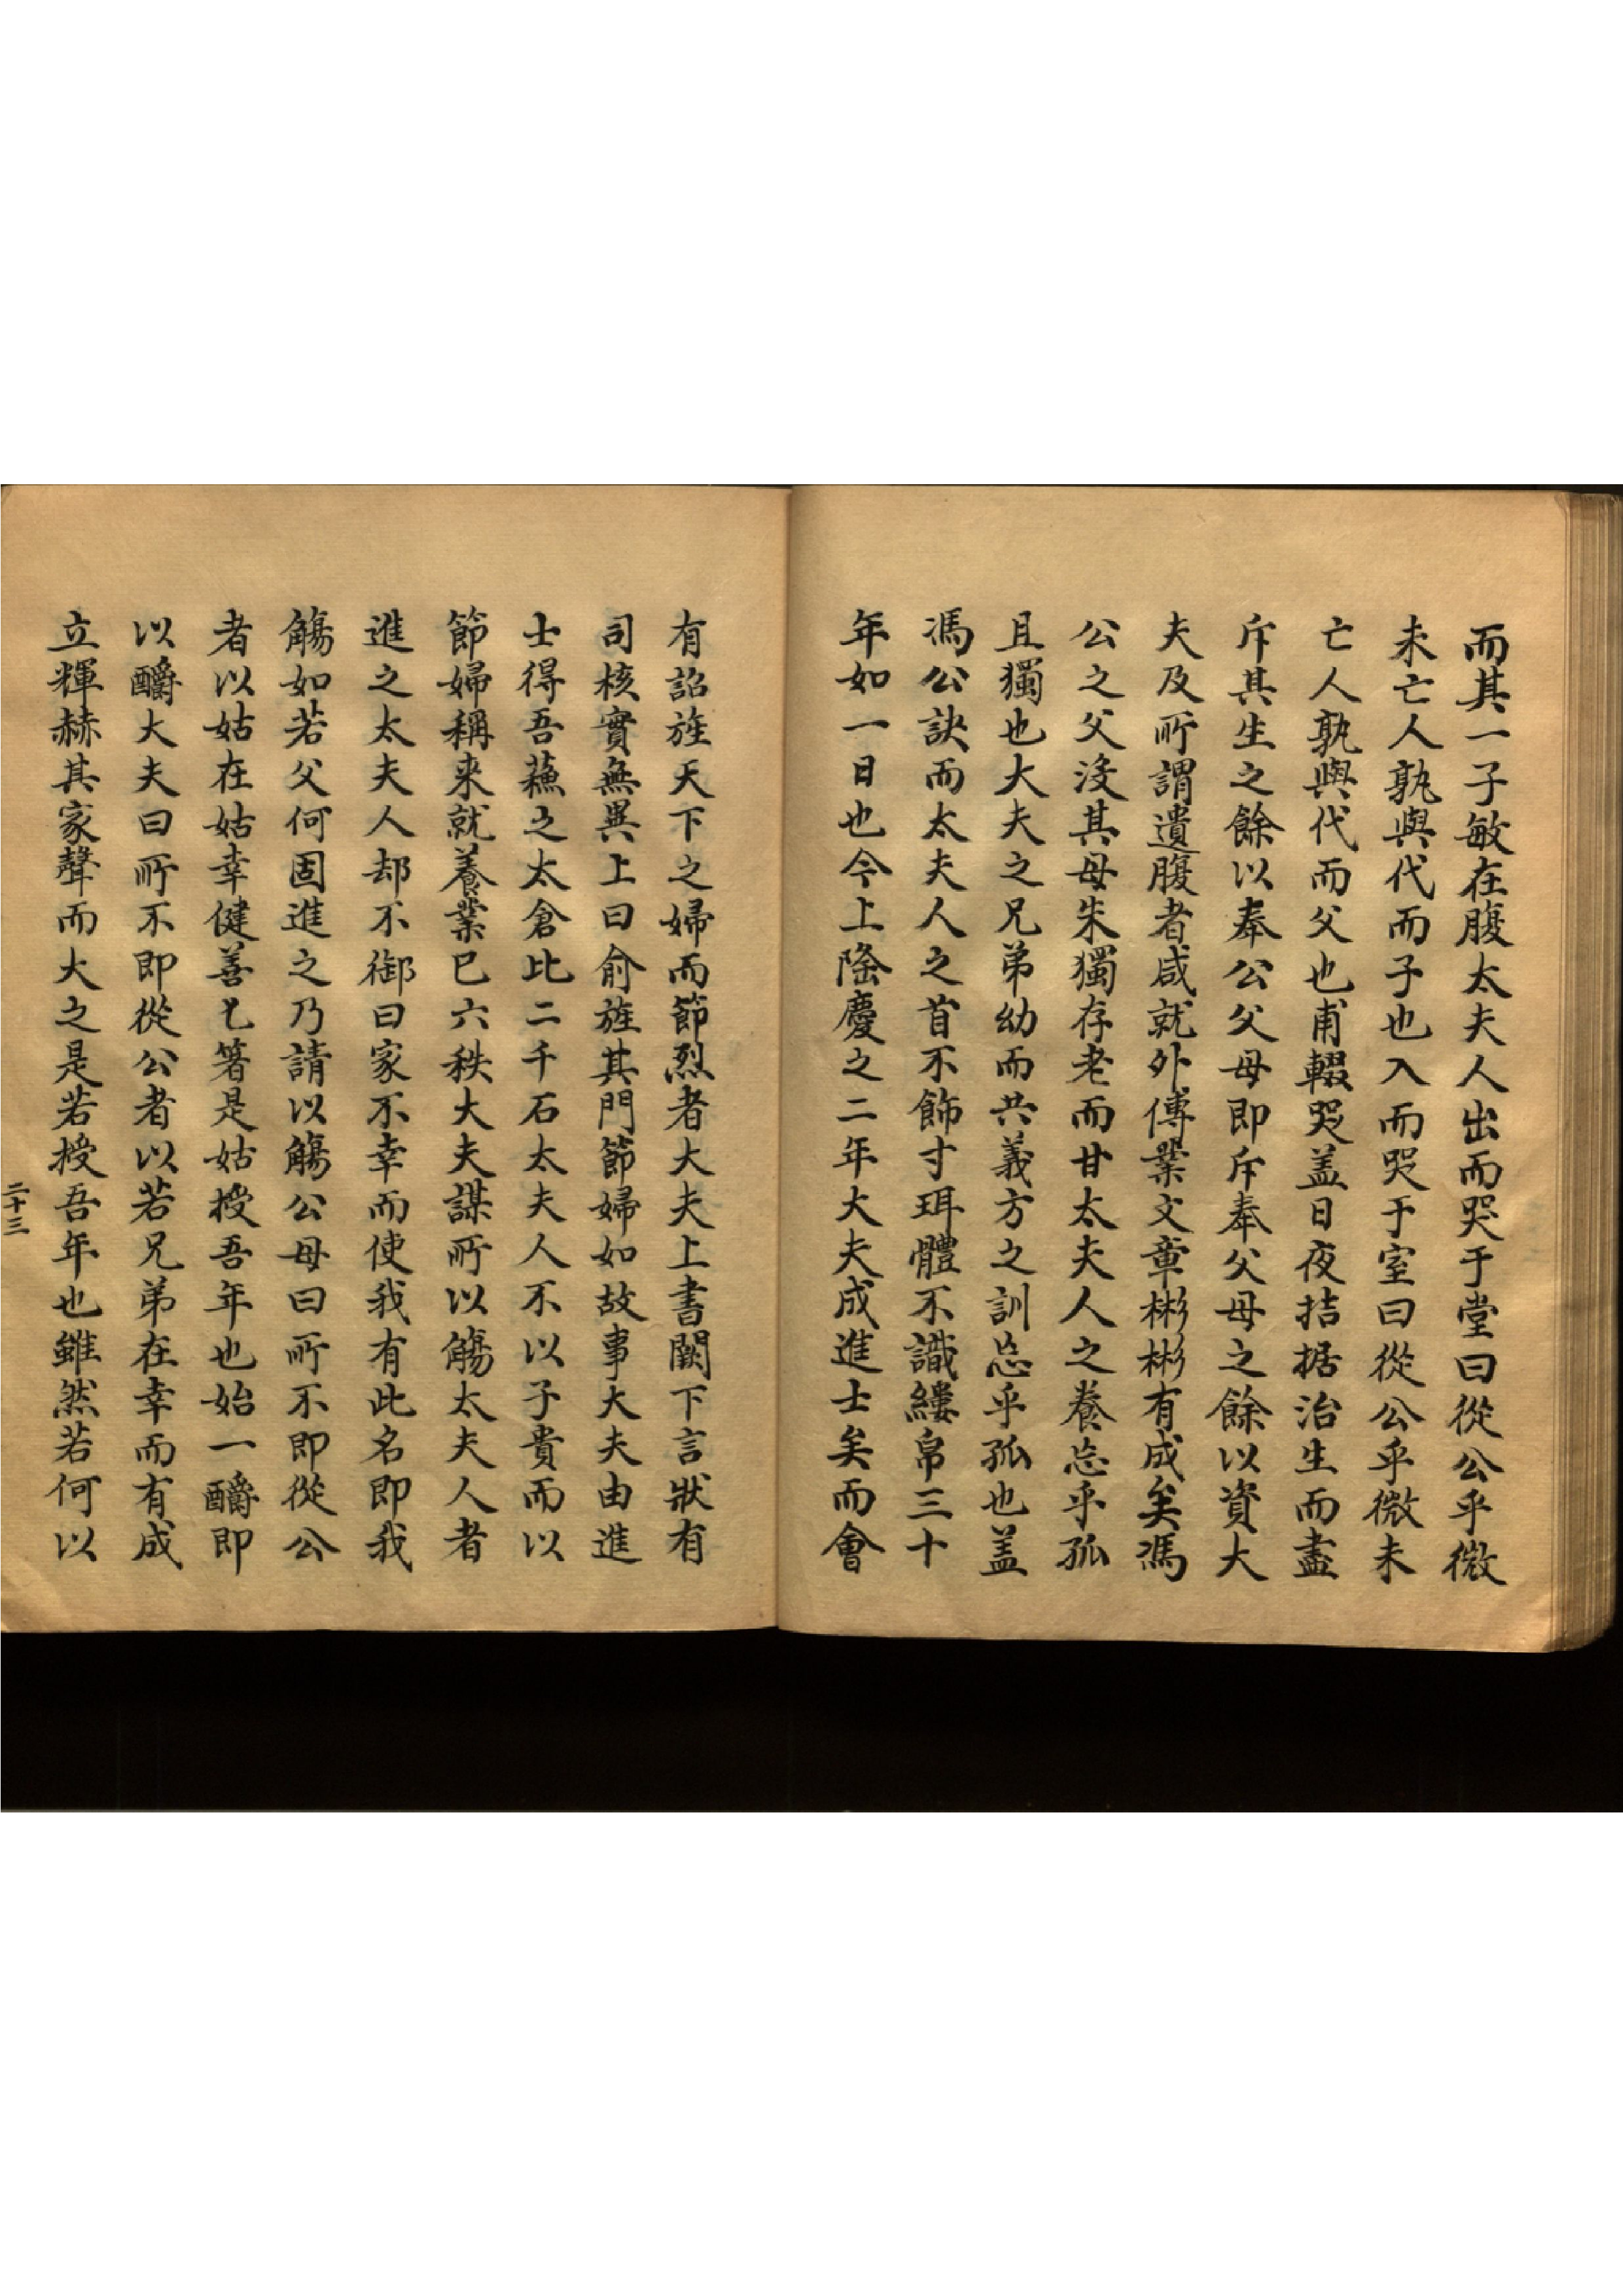 而其一子敏在腹太夫人出而哭于堂曰從公乎微
未亡人孰與代而子也入而哭于室曰從公乎微未
亡人孰與代而父也甫輟哭盖日夜拮据治生而盡
斥其生之餘以奉公父母即斥奉父母之餘以資大
夫及所謂遺腹者咸就外傅業文章彬彬有成矣馮
公之父沒其母朱獨存老而甘太夫人之養忘乎孤
且獨也大夫之兄弟幼而共義方之訓忘乎孤也盖
馮公訣而太夫人之首不飾寸珥體不識縷帛三十
年如一日也今上隆慶之二年大夫成進士矣而會
有詔旌天下之婦而節烈者大夫上書闕下言狀有
司核實無異上曰俞旌其門節婦如故事大夫由進
士得吾蘓之太倉比二千石太夫人不以子貴而以
節婦稱来就養業已六秩大夫謀所以觴太夫人者
進之太夫人却不御曰家不幸而使我有此名即我
觴如若父何固進之乃請以觴公母曰所不即從公
者以姑在姑幸健善匕箸是姑授吾年也始一釂即
以釂大夫曰所不即從公者以若兄弟在幸而有成
立輝赫其家聲而大之是若授吾年也雖然若何以
二十三